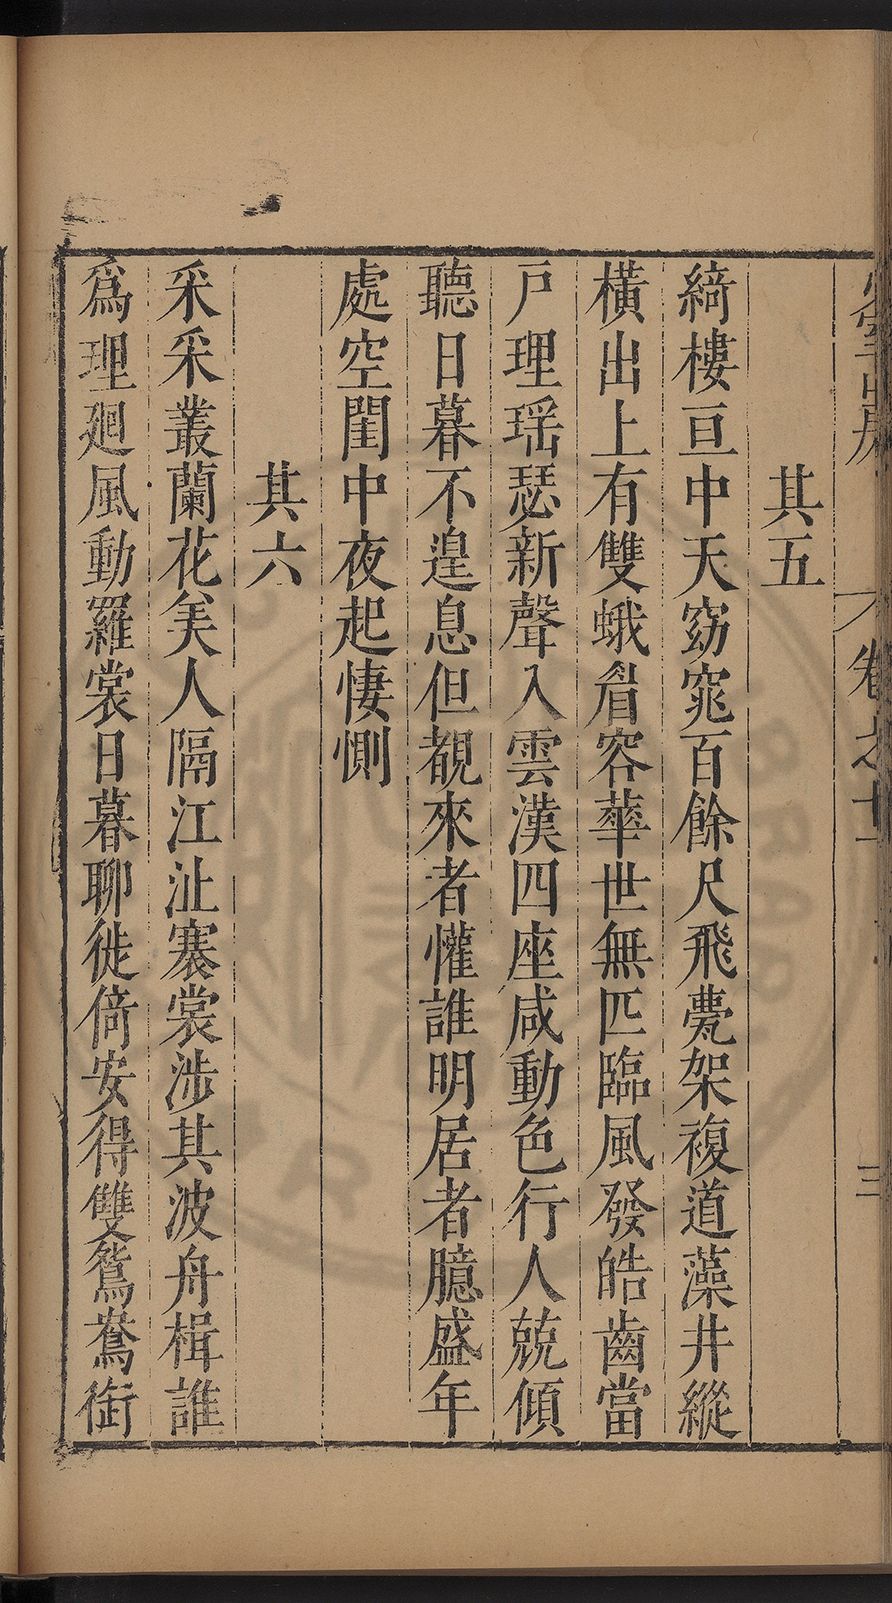 卷之十
三
其五
綺樓亘中天窈窕百餘尺飛甍架複道藻井縱
橫出上有雙蛾眉容華世無匹臨風發皓齒當
戶理瑶瑟新聲入雲漢四座咸動色行人兢傾
聽日暮不遑息但覩來者懽誰明居者臆盛年
處空閨中夜起悽惻
其六
采采叢蘭花美人隔江沚褰裳涉其波舟楫誰
爲理廻風動羅裳日暮聊徙倚安得雙鴛鴦銜